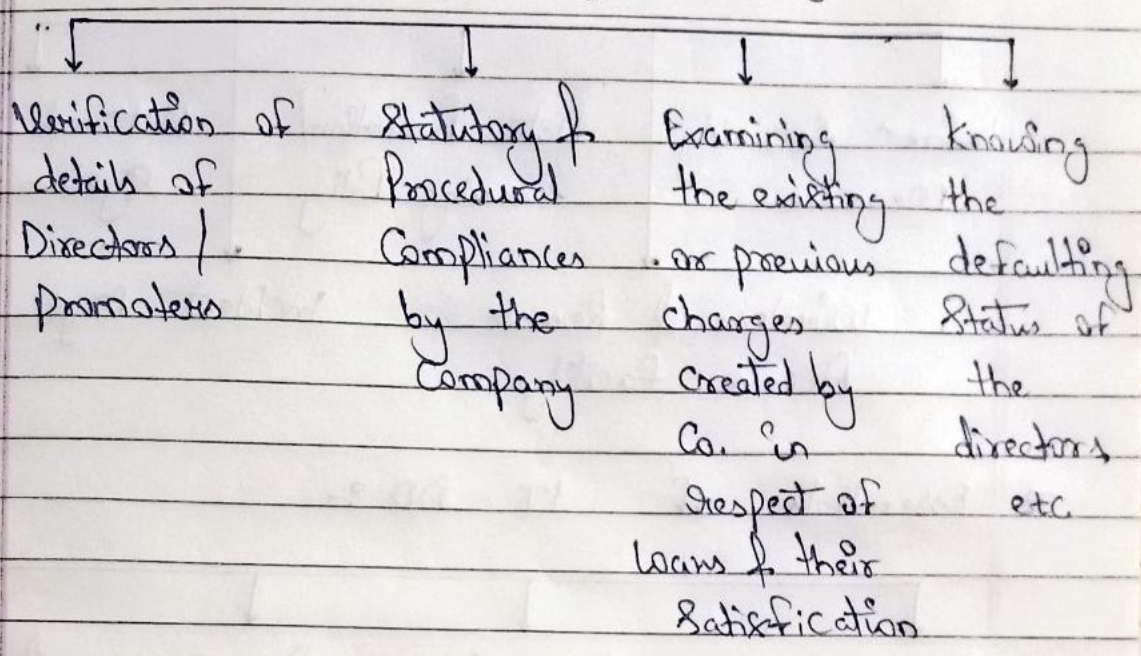 Verification of
details of
Directors /
promoters
Statutory &
Procedural
Compliances
by the
Company
Examining
the existing
or previous
charges
created by
Co. in
respect of
loans & their
Satisfication
Knowing
the
defaulting
Status of
the
directors
etc